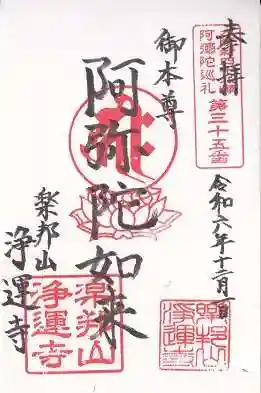 奉拝
阿彌陀巡礼
第三十五番
御本尊
阿弥陀如来
令和六年十二月一日
楽邦山
浄運寺
楽邦山
浄運寺